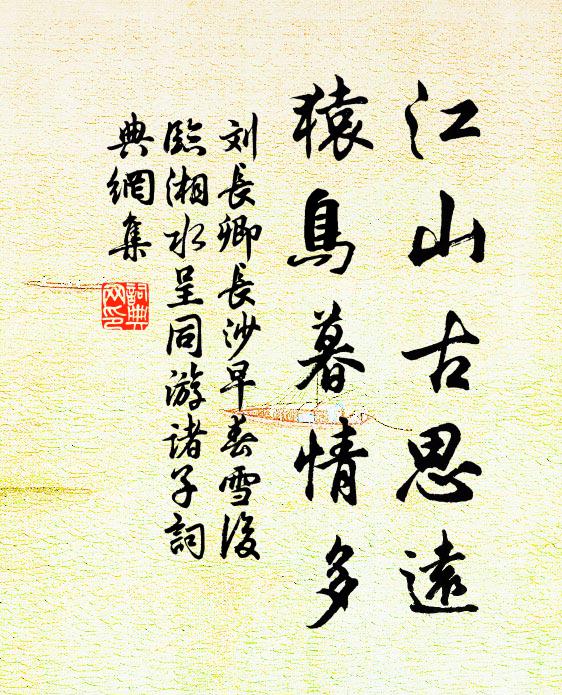 江山古思遠
猿鳥暮情多
刘長卿長沙早春雪後
臨湘水呈同游諸子詞
典網集
詞典網印